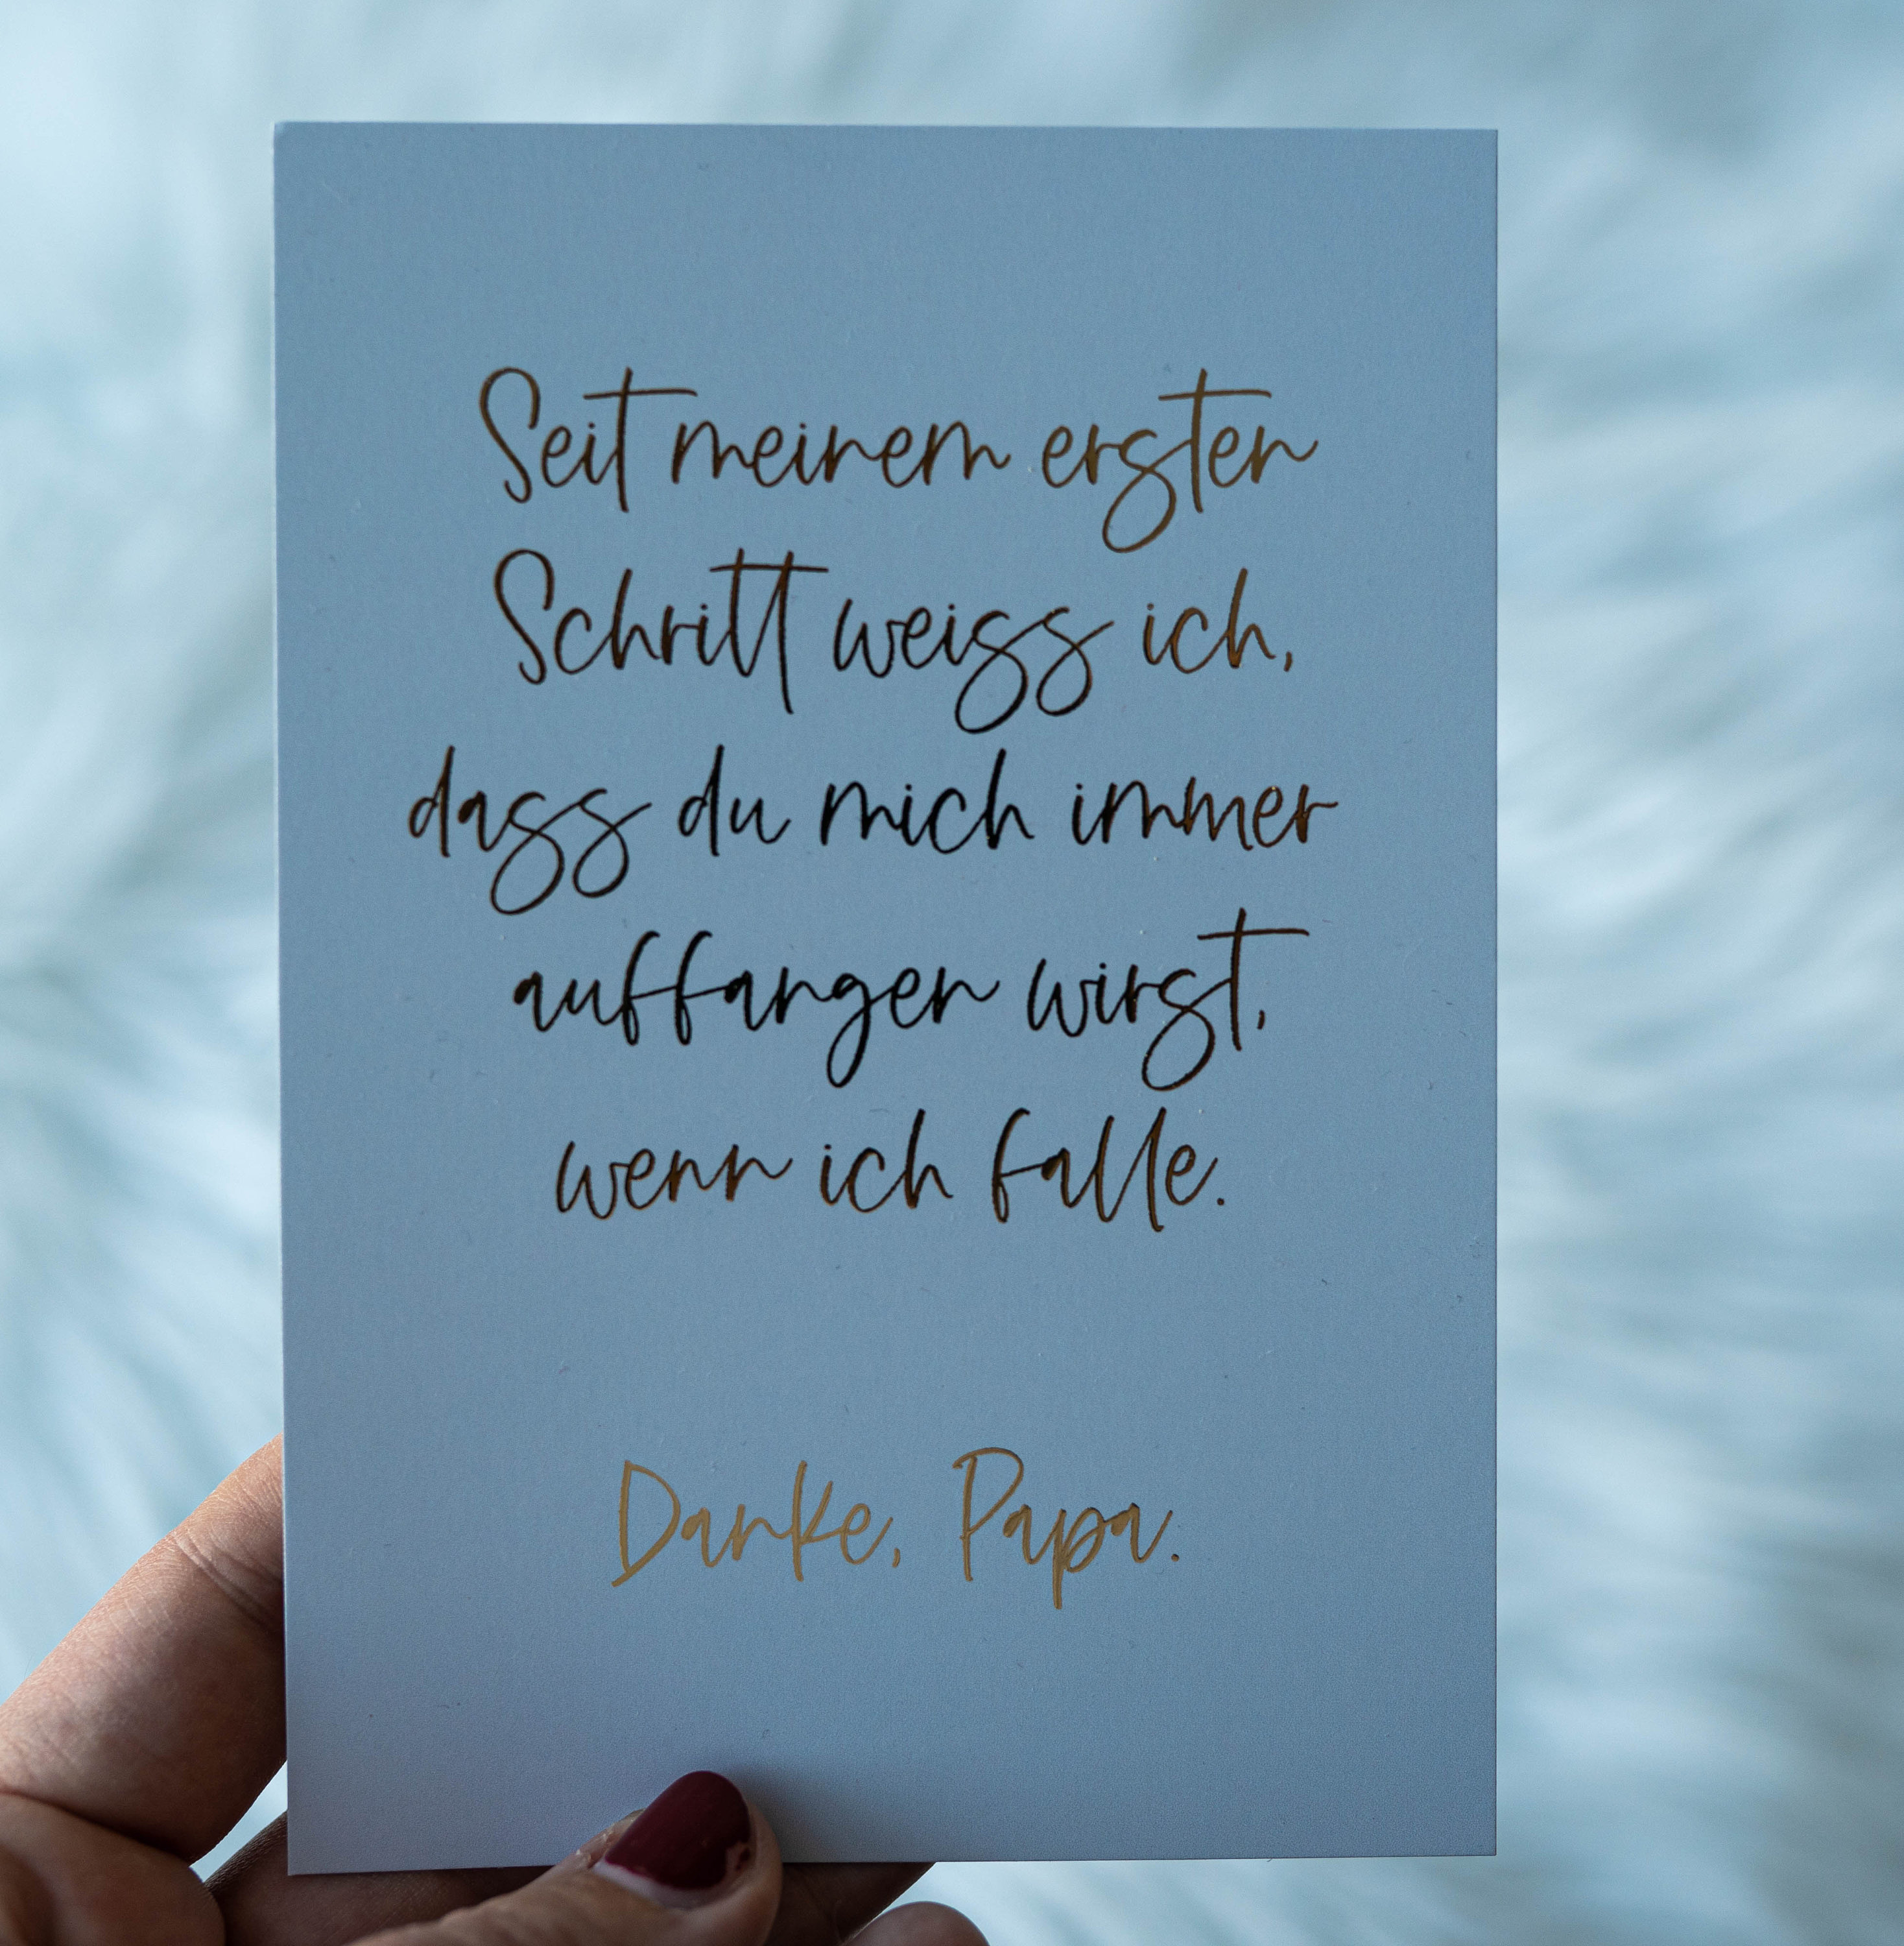 Seit meinem ersten
Schritt weiss ich,
dass du mich immer
auffangen wirst,
wenn ich falle.
Danke, Papa.